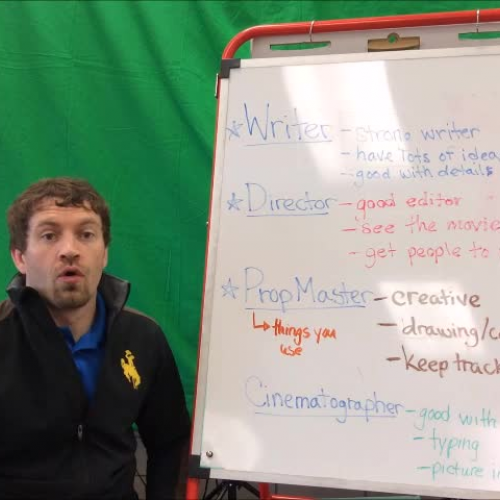 ☆ Writer - strong writer
- have lots of idea
- good with details
☆ Director - good editor
- see the movie
- get people to
☆ PropMaster - creative
↳ things you use
- drawing/c
- keep track
Cinematographer - good with
- typing
- picture in